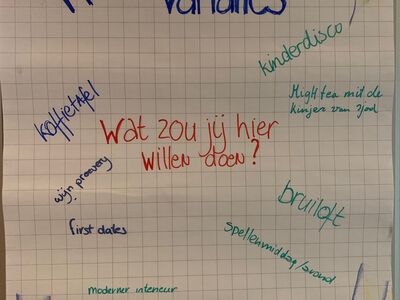 variaties
kinderdisco
High tea mit de
kinjer van
koffietafel
Wat zou jij hier
willen doen?
wijn proeverij
bruiloft
first dates
spellenmiddag/avond
moderner interieur